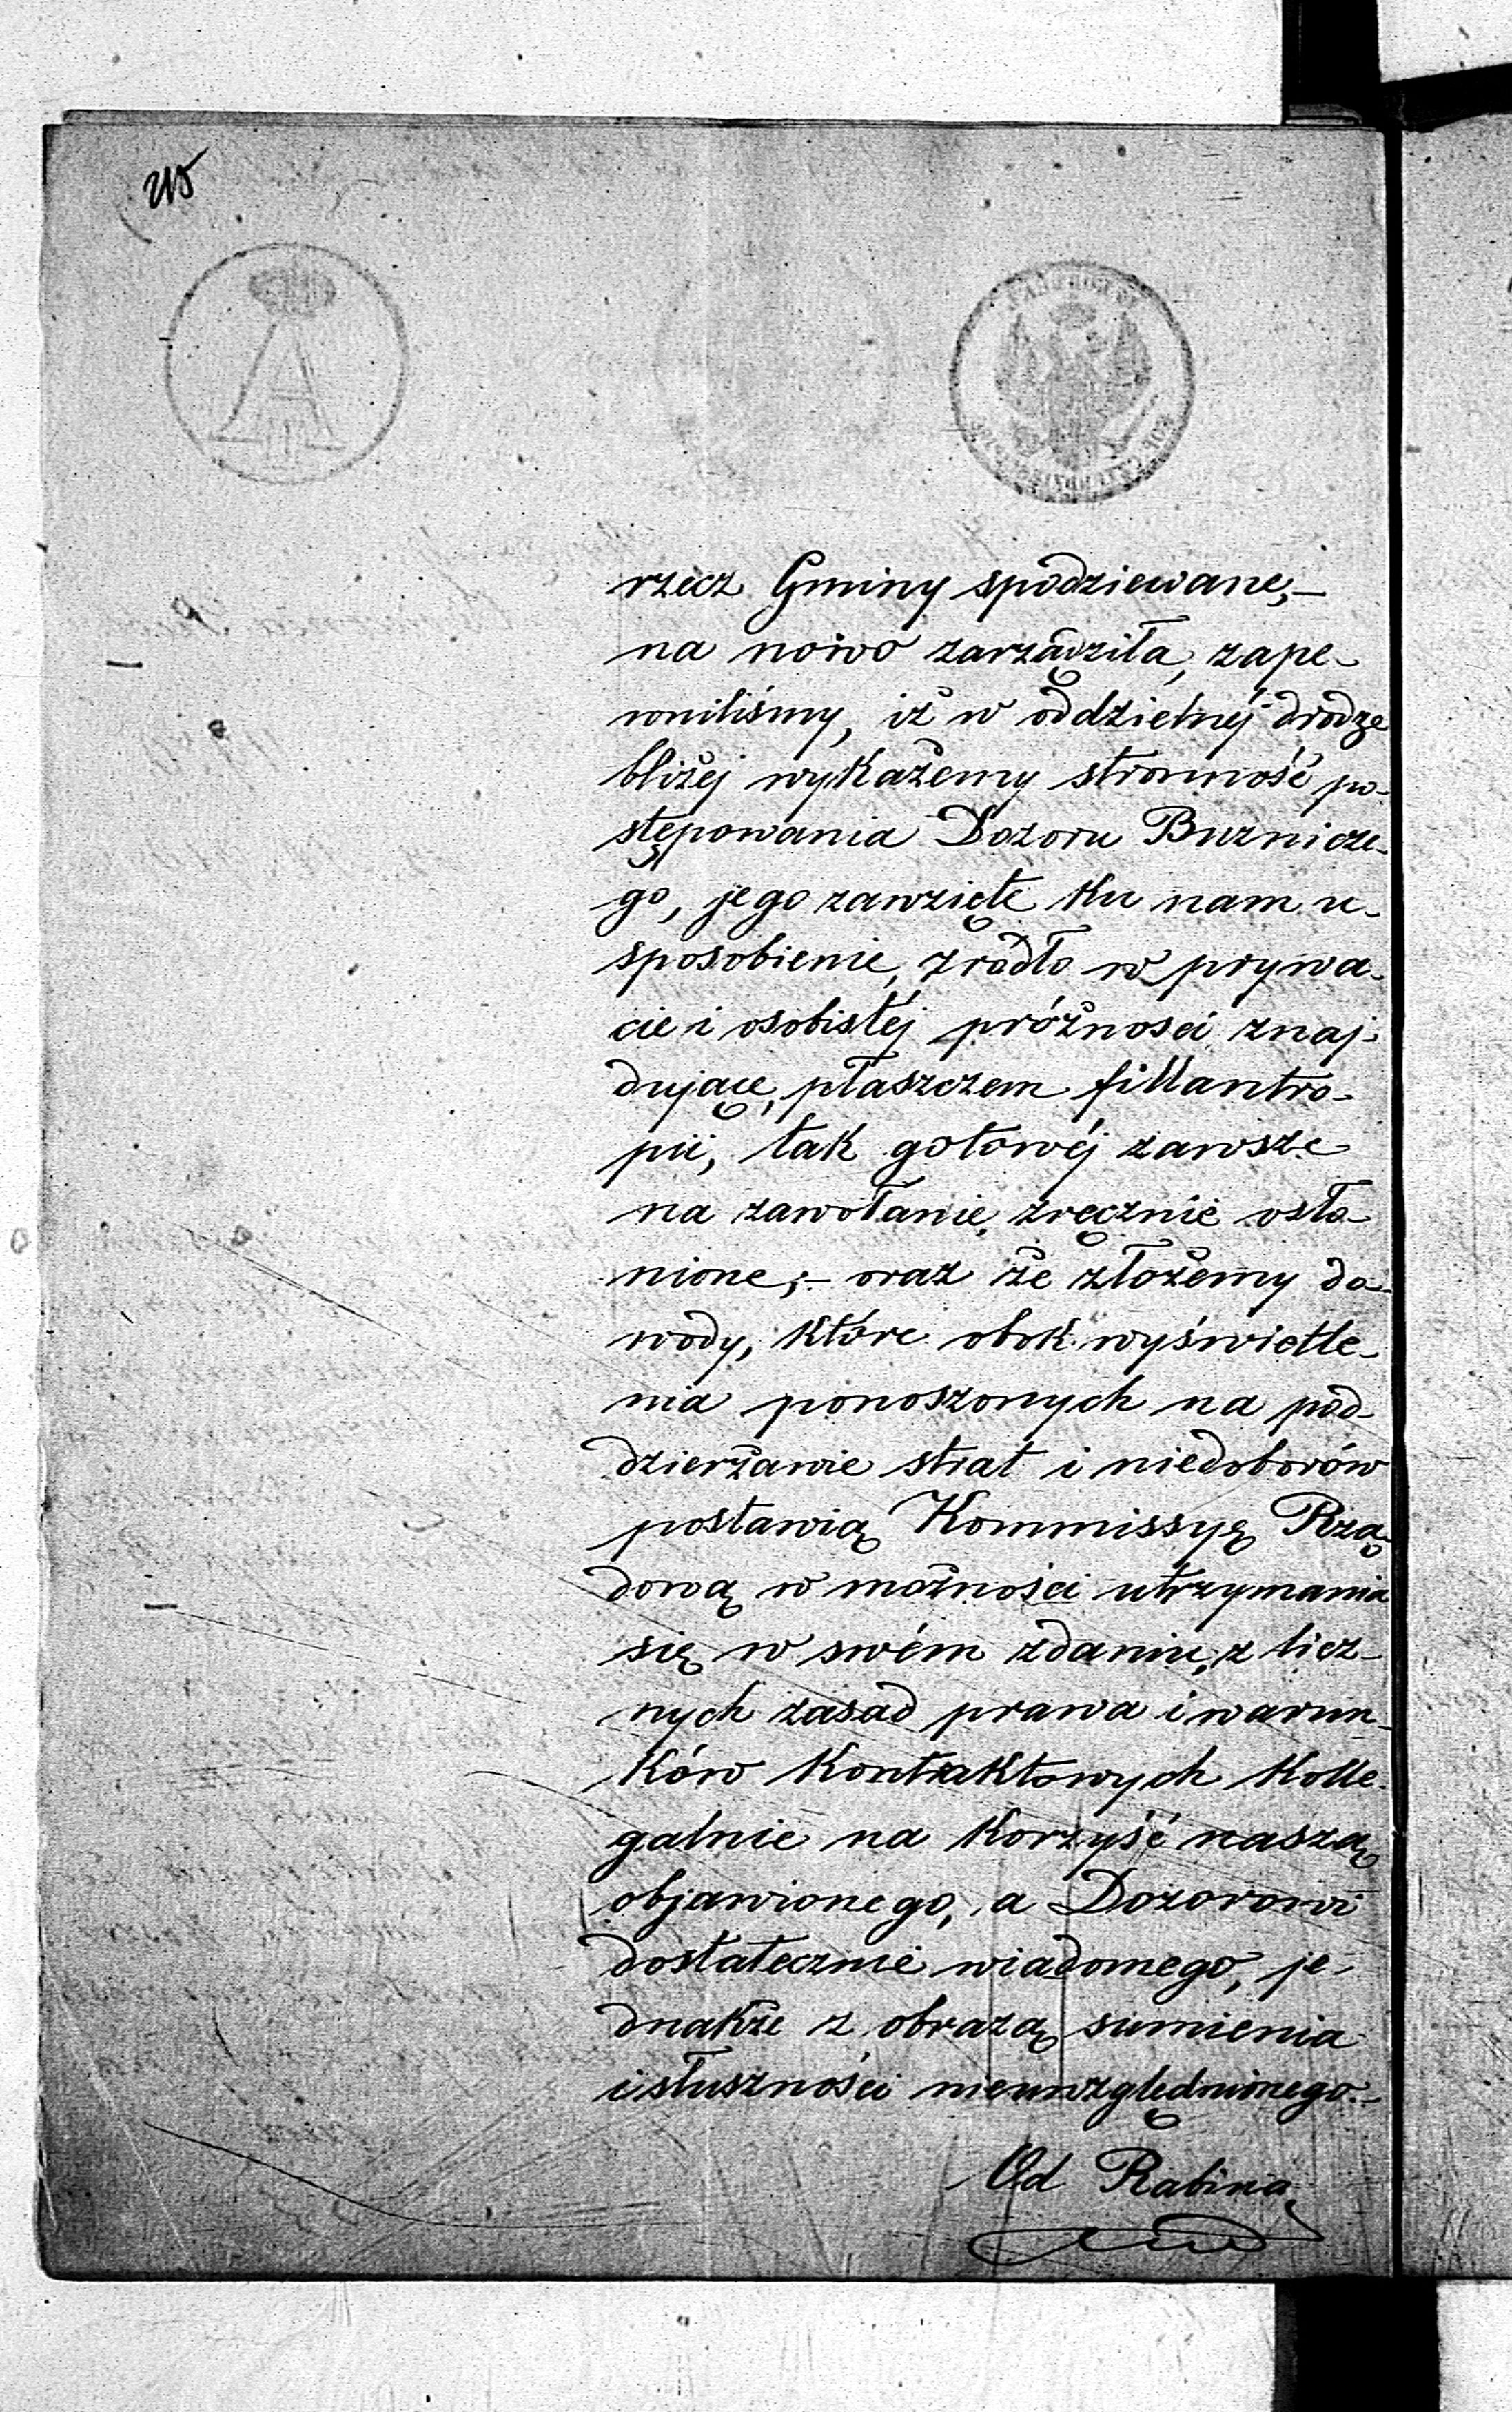 rzecz Gminy spodziewane,—
na nowo zarządziła, zape-
wniliśmy, iż w oddzielnéj drodze
bliżéj wykażemy stronność po-
stępowania Dozoru Bużnicze-
go, jego zawzięte ku nam u-
sposobienie, źródło w prywa-
cie i osobistéj próżności znaj-
dujące, płaszczem fillantro-
pii, tak gotowéj zawsze
na zawołanie, zręcznie osło-
nione;— oraz że złożemy do-
wody, które obok wyświetle-
nia ponoszonych na pod-
dzierżawie strat i niedoborów
postawią Kommissyę Rzą-
dową w możności utrzymania
się w swém zdaniu, z licz-
nych zasad prawa i warun-
ków kontraktowych kolle-
galnie na korzyść naszą
objawionego, a Dozorowi
dostatecznie wiadomego, je-
dnakże z obrazą sumienia
i słuszności nieuwzględnionego.—
Od Rabina